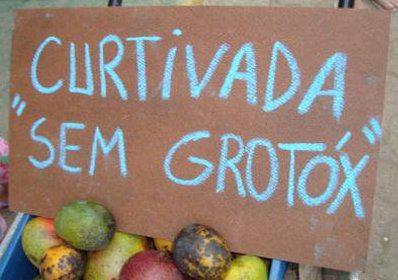 CURTiVADA
"SEM GROTÓX"